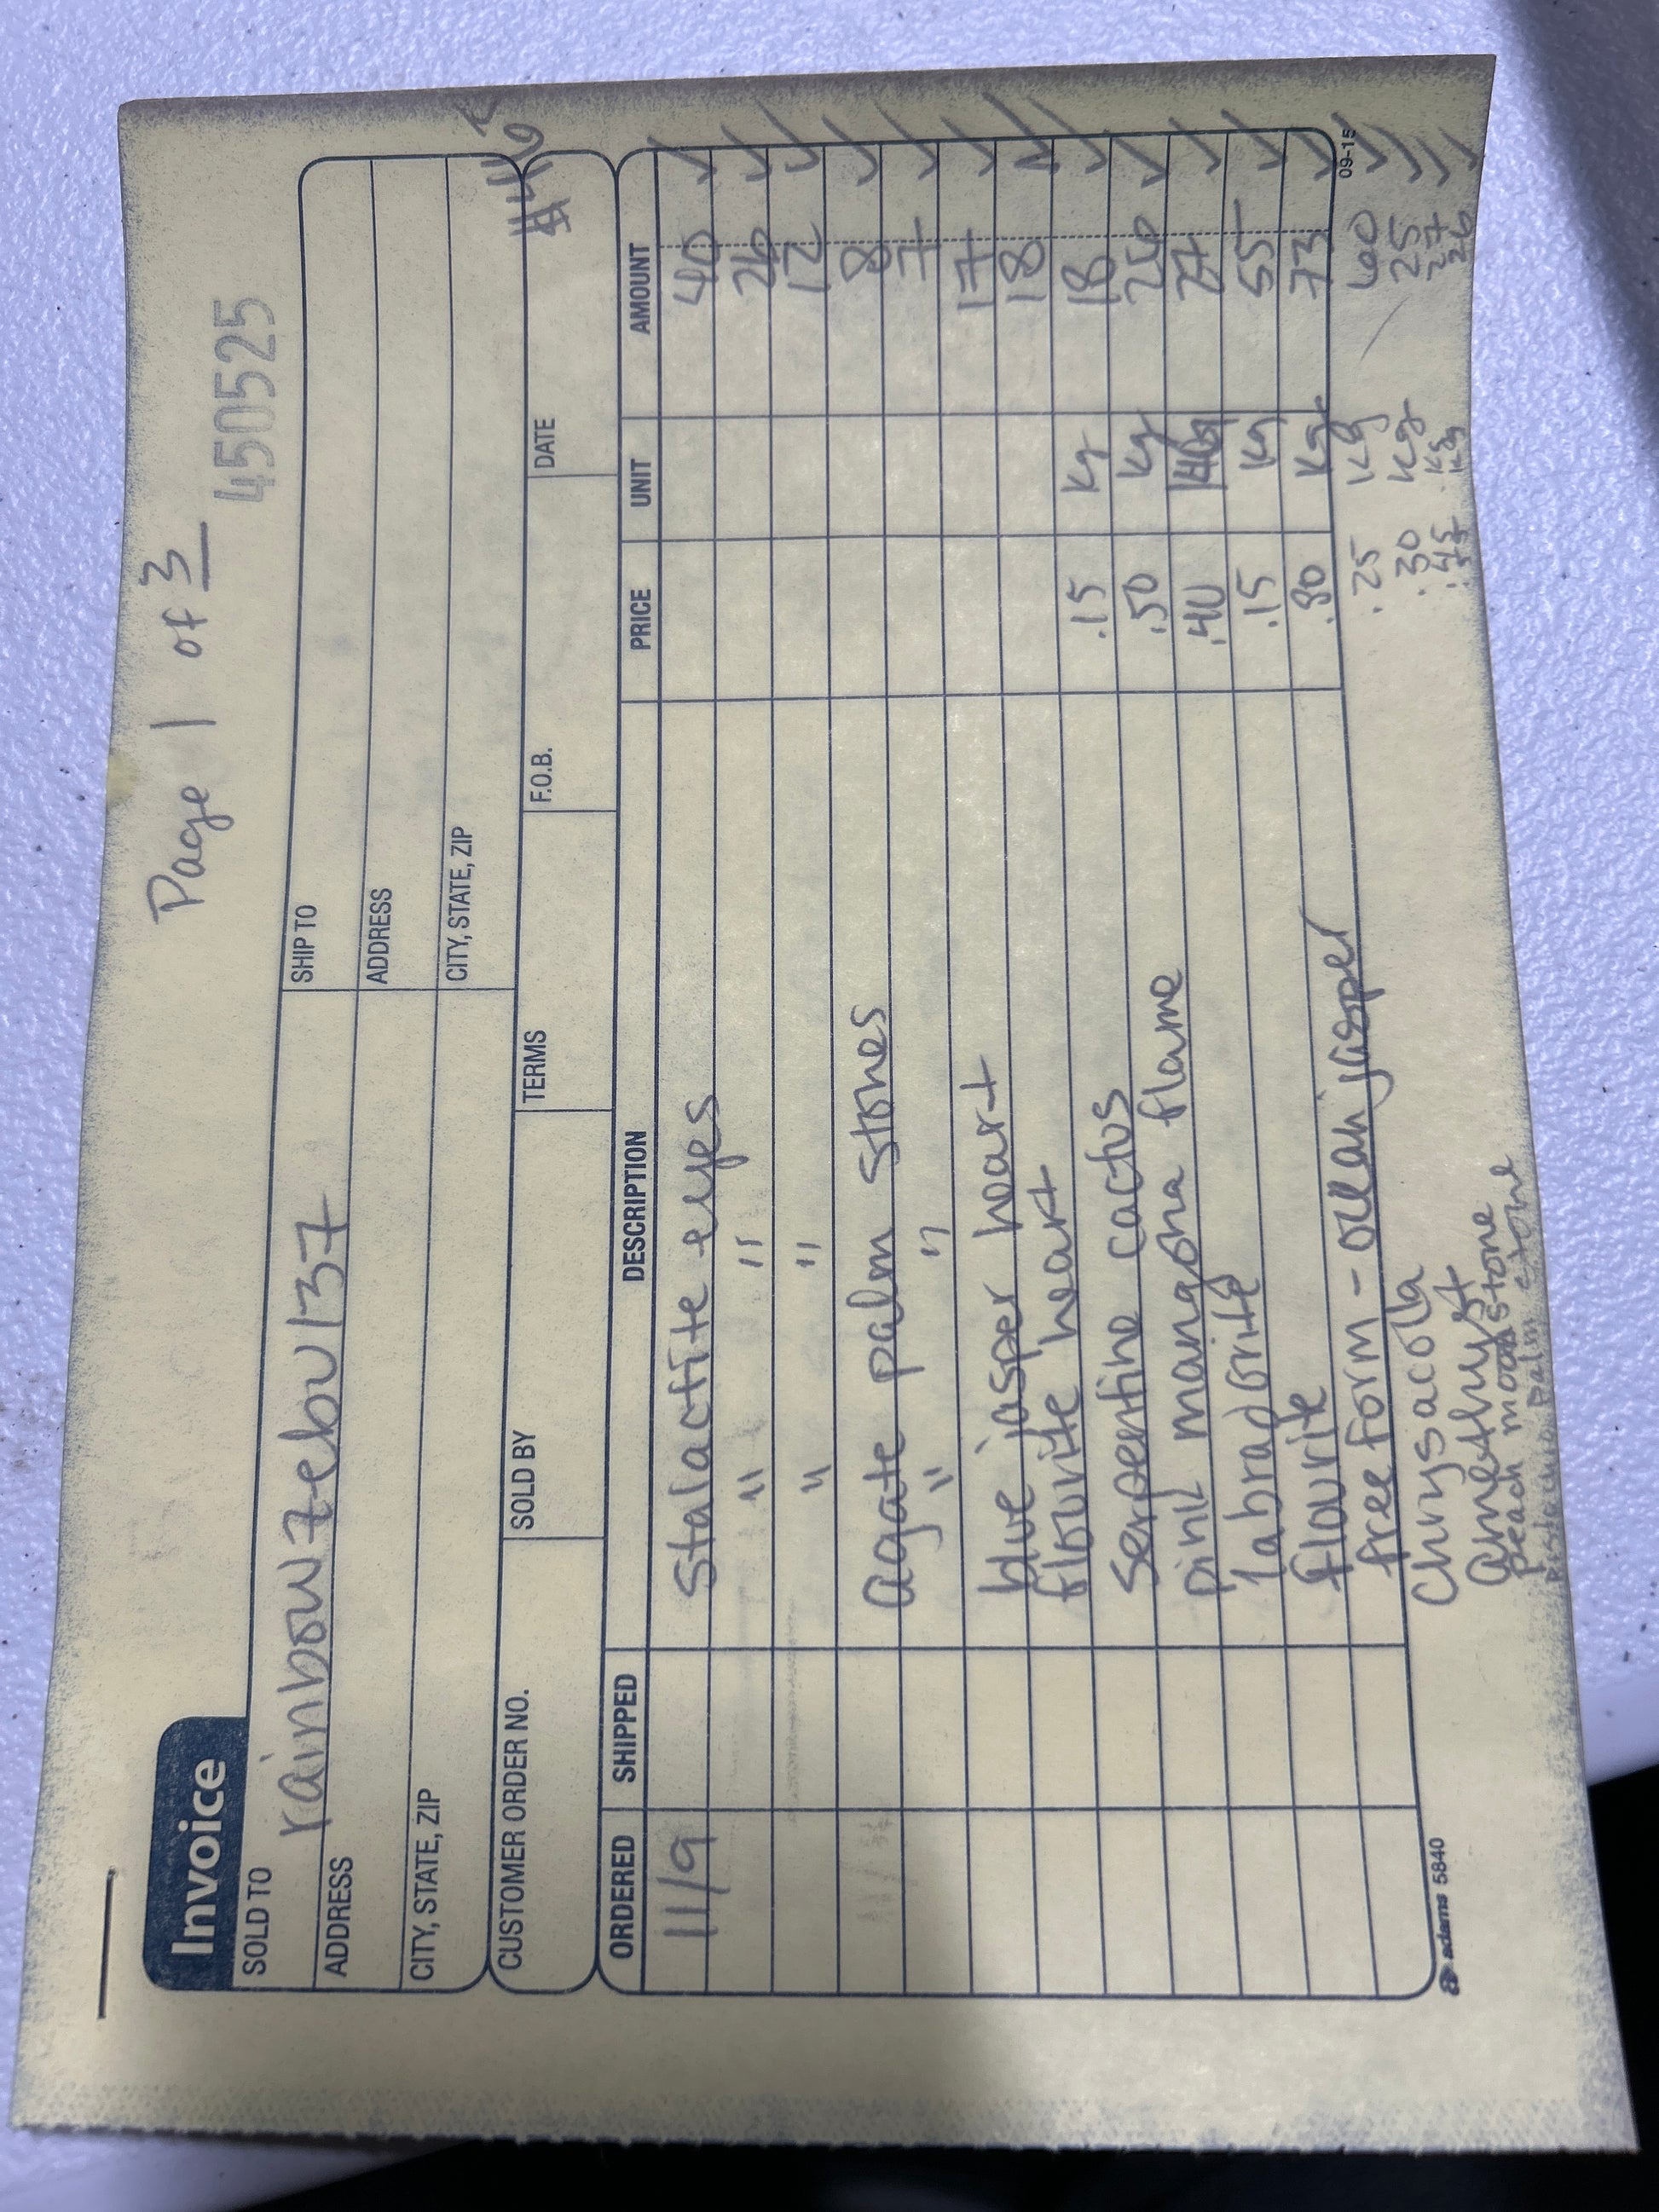 Page 1 of 3
Invoice
450525
SOLD TO rainbowzebu137
SHIP TO
ADDRESS
ADDRESS
CITY, STATE, ZIP
CITY, STATE, ZIP
CUSTOMER ORDER NO. SOLD BY TERMS F.O.B. DATE
ORDERED SHIPPED DESCRIPTION PRICE UNIT AMOUNT
11/9 Stalactite eyes 40 ✓
" " 26 ✓
" " 12 ✓
agate palm stones 8 ✓
" " 7 ✓
blue jasper heart 17 ✓
flourite heart 18 ✓
Serpentine cactus .15 Kg 18 ✓
pink mangona flame .50 Kg 26 ✓
labradorite .40 27 ✓
flourite .15 Kg 55 ✓
free form - ocean jasper Kg 73 ✓
Chrysacolla .25 Kg 60 ✓
amethyst .30 Kg 25 ✓
peach moonstone .45 Kg 27 ✓
palm stone Kg 26 ✓
adams 5840
09-15